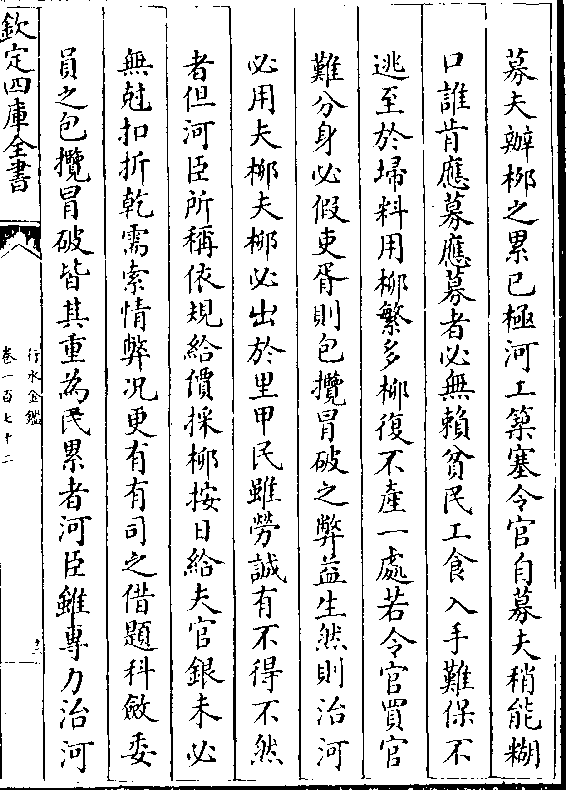 募夫辦桞之累已極河工築塞令官自募夫稍能糊
口誰肯應募應募者必無賴貧民工食入手難保不
逃至於埽料用桞繁多桞復不產一處若令官買官
難分身必假吏胥則包攬冒破之弊益生然則治河
必用夫桞夫桞必出於里甲民雖勞誠有不得不然
者但河臣所稱依規給價採桞按日給夫官銀未必
無尅扣折乾需索情弊况更有有司之借題科斂委
員之包攬冒破皆其重為民累者河臣雖專力治河
欽定四庫全書
行水金鑑
卷一百七十二